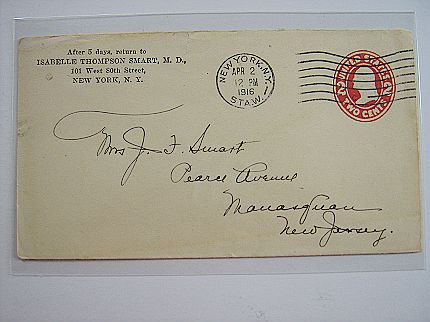 After 5 days, return to
ISABELLE THOMPSON SMART, M. D.,
101 West 80th Street,
NEW YORK, N. Y.
NEW YORK, N.Y.
APR 2
12 PM
1916
STA. W
UNITED STATES
TWO CENTS
2 2
Mrs J. F. Smart
Pearce Avenue
Manasquan
New Jersey.